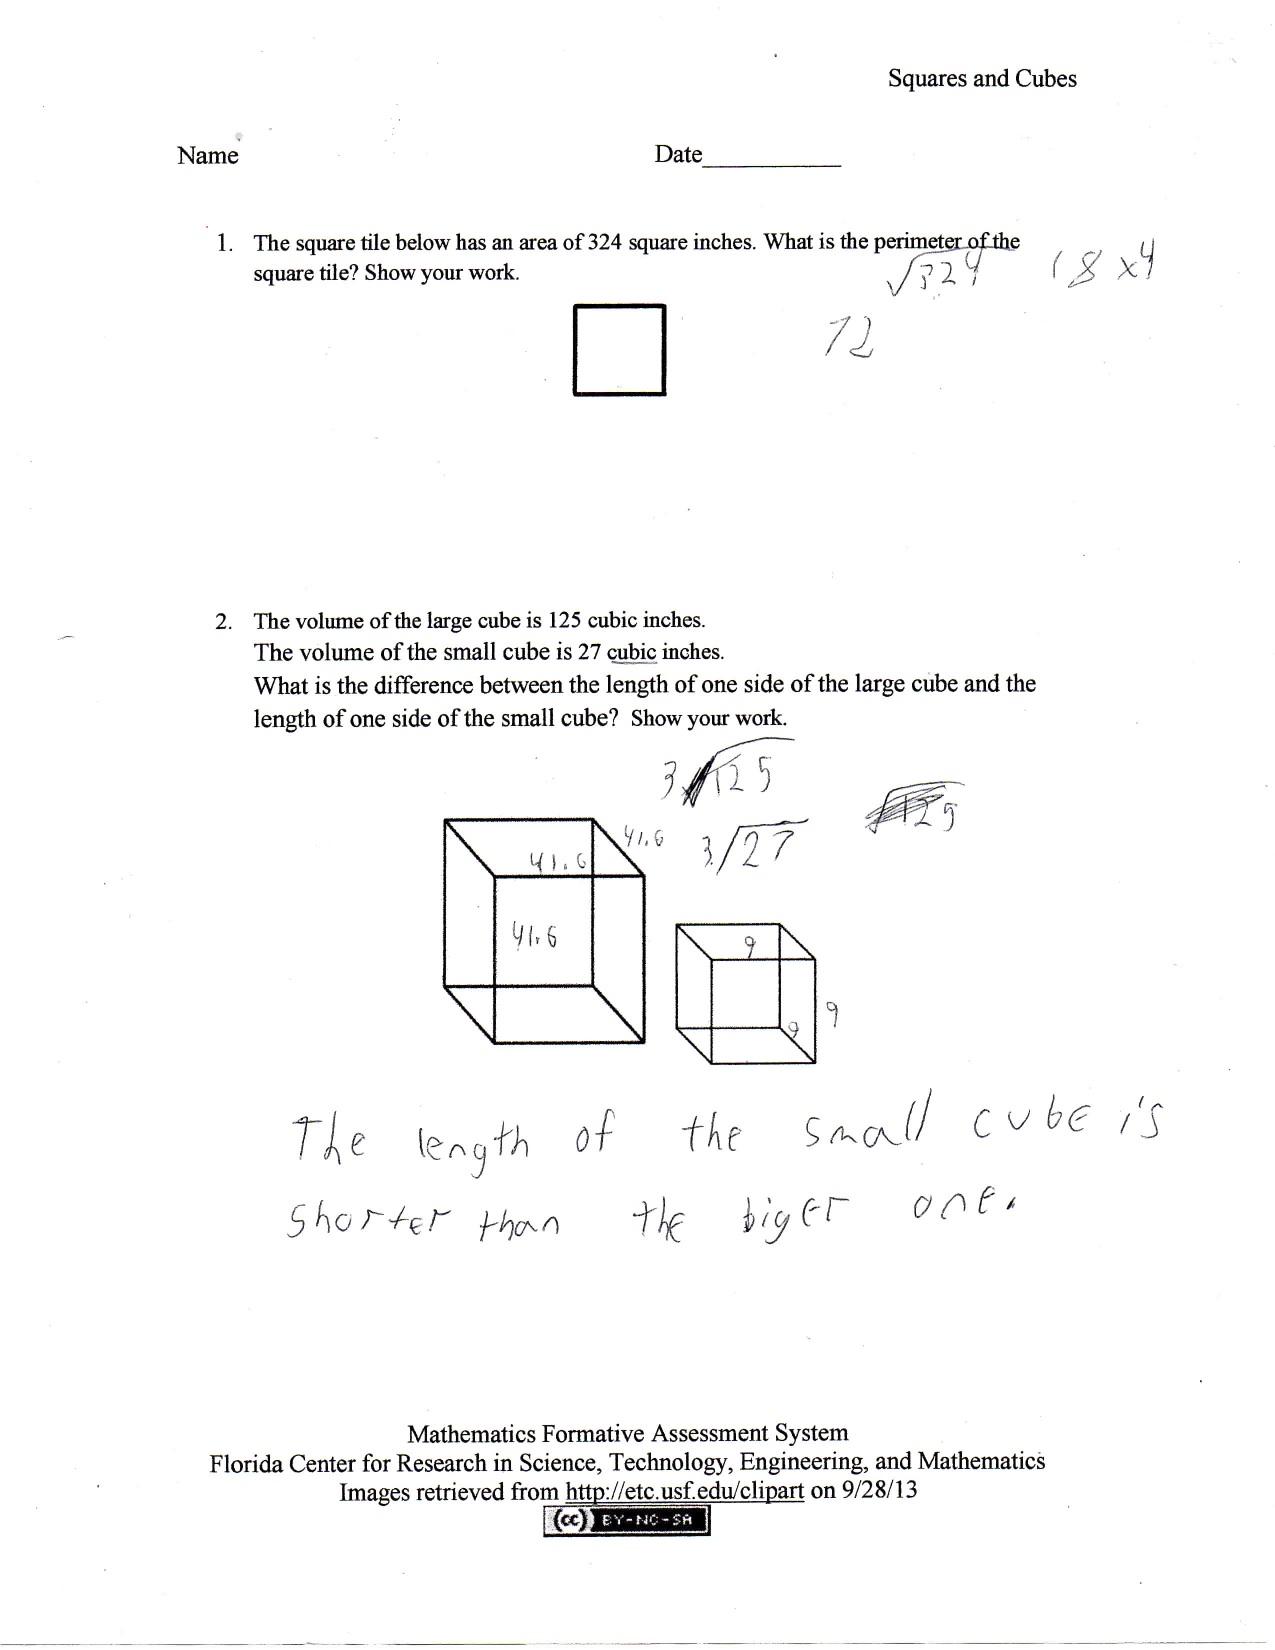 Squares and Cubes
Name Date___________
1. The square tile below has an area of 324 square inches. What is the perimeter of the
square tile? Show your work.
√324 18 x4
72
2. The volume of the large cube is 125 cubic inches.
The volume of the small cube is 27 cubic inches.
What is the difference between the length of one side of the large cube and the
length of one side of the small cube? Show your work.
3√125
41.6 3√27
41.6
41.6
9
9
9
The length of the small cube is
shorter than the biger one.
Mathematics Formative Assessment System
Florida Center for Research in Science, Technology, Engineering, and Mathematics
Images retrieved from http://etc.usf.edu/clipart on 9/28/13
(cc) BY-NC-SA